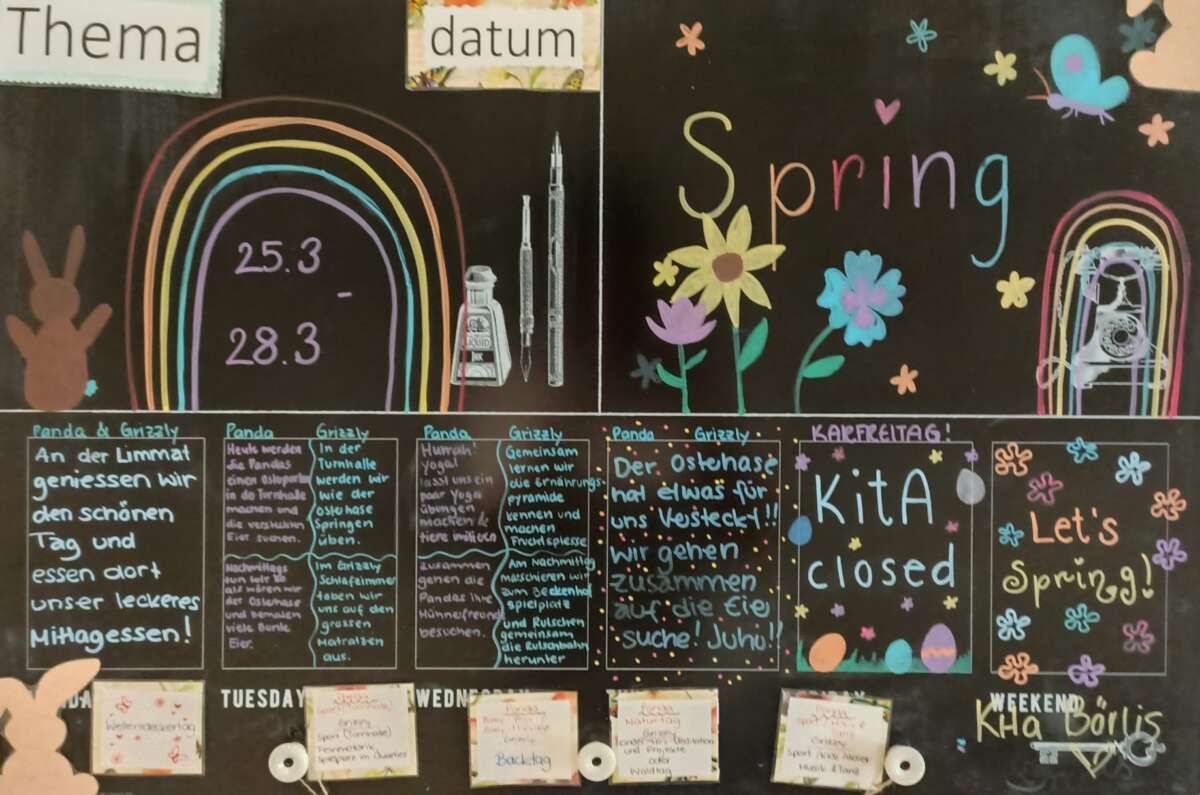 Thema
datum
Spring
25.3
-
28.3
LIQUID
INK
Panda & Grizzly
An der Limmat
geniessen wir
den schönen
Tag und
essen dort
unser leckeres
Mittagessen!
Panda
Heute werden
die Pandas
einen
in de Turnhalle
machen und
die versteckten
Eier suchen.
Nachmittags
tun wir so
als wären wir
der Osterhase
und bemalen
viele Bunte
Eier.
Grizzly
In der
Turnhalle
werden wir
wie der
ostehase
Springen
üben.
Im Grizzly
Schlafzimmer
toben wir
uns auf den
grossen
Matratzen
aus.
Panda
Hurrah!
yoga!
lasst uns ein
paar Yoga
übungen
machen &
tiere imitieren
zusammen
gehen die
Pandas ihre
Hünnefreunde
besuchen.
Grizzly
Gemeinsam
lernen wir
die Ernährungs-
pyramide
kennen und
machen
Fruchtspiesse
Am Nachmittag
matschieren wir
zum Beckenhof
spielplatz
und Rutschen
gemeinsam
die Rutschbahn
herunter
Panda Grizzly
Der Ostehase
hat etwas für
uns Vesteckt!!
wir gehen
zusammen
auf die Eie
suche! Juhu!!
KARFREITAG!
KitA
closed
Let's
Spring!
TUESDAY
WEDNESDAY
WEEKEND
Kita Börlis
Panda
Grizzly
Sport (Turnhalle)
Feinmotorik
Spielplatz im Quartier
Panda
Grizzly
Backtag
Panda
Naturtag
Grizzly
und Projekte
oder
Waldtag
Panda
Grizzly
Musik & Tanz